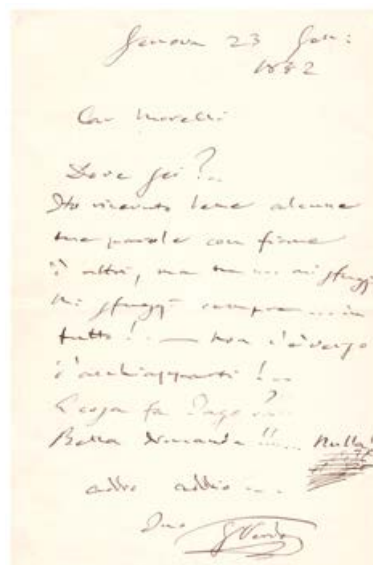 Genova 23 Gen:
1882
Car Morelli
Dove sei?..
Ho ricevuto bene alcune
tue parole con firme
d'altri, ma tu... mi sfuggi
Mi sfuggi sempre... in
tutto!.. — Non c'è verso
d'acchiapparti!..
E cosa fa Jago?...
Bella domanda!!.... Nulla!
addio addio...
Tuo GVerdi